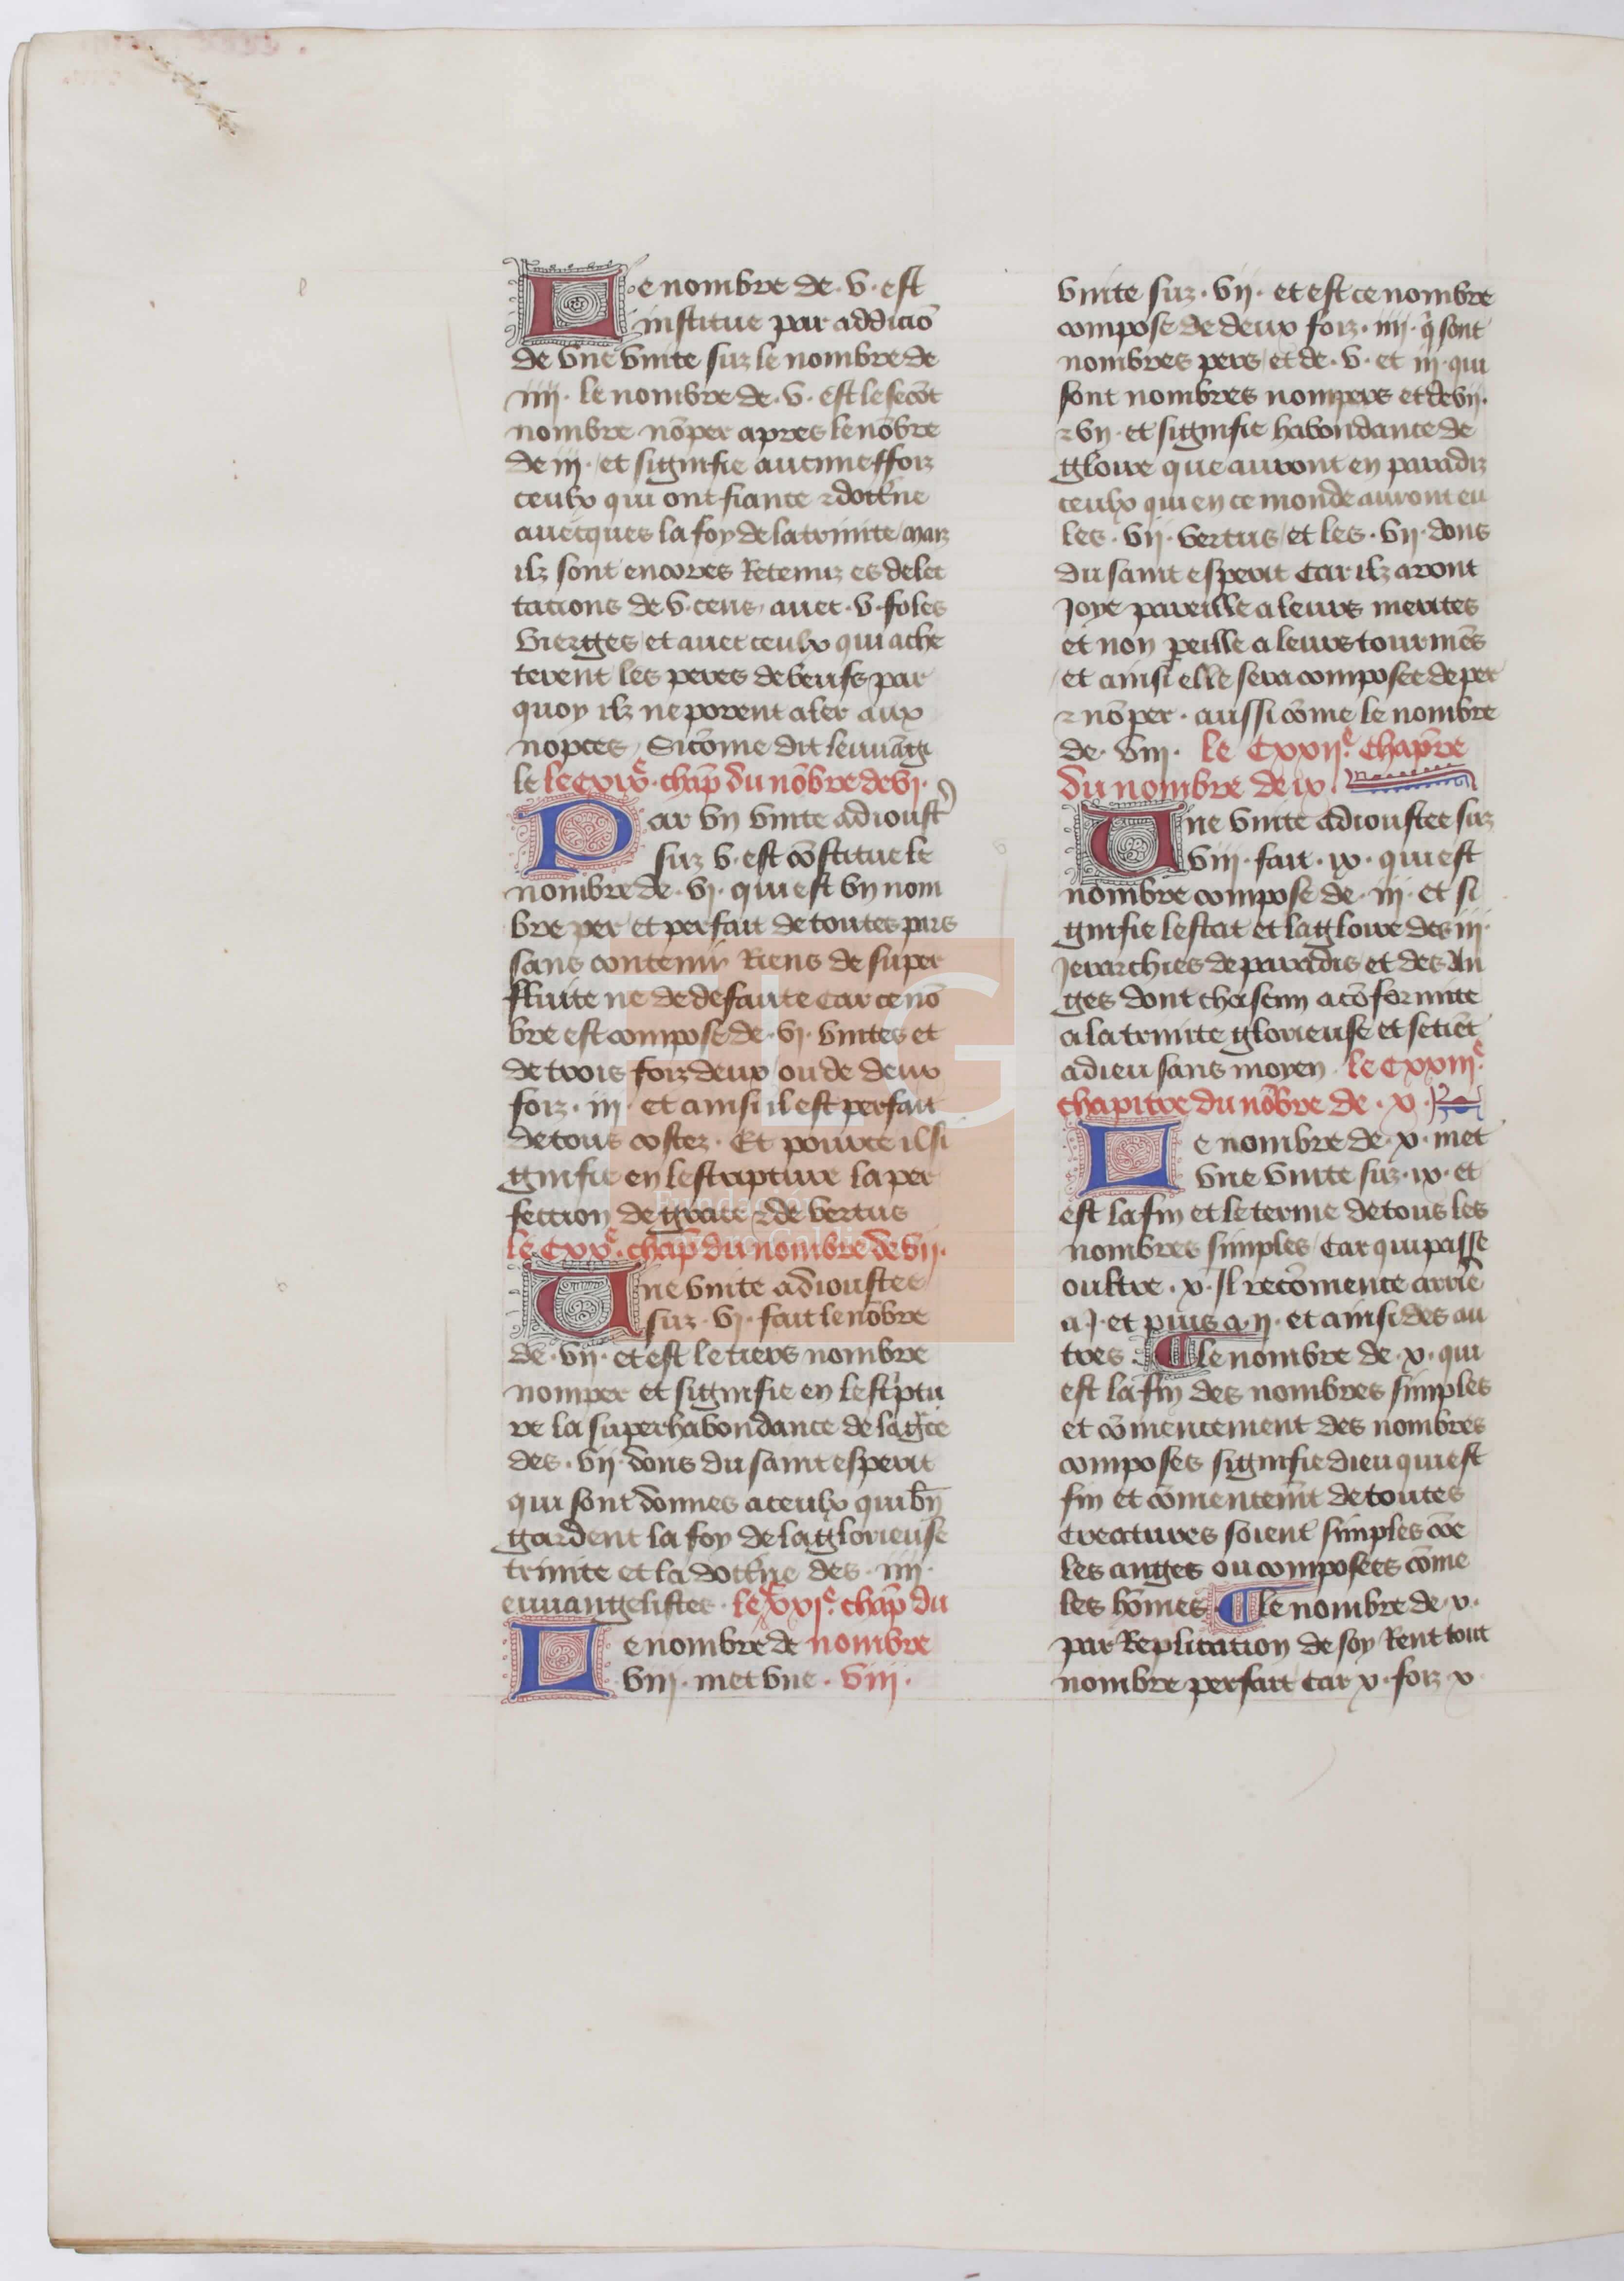 Le nombre de · v · est
institue par addiciō
de vne vnite suz le nombre de
iiij · le nombre de · v · est le secōt
nombre nōper apres le nōbre
de iij · et signifie aucuneffoiz
ceulx qui ont fiance ⁊ doctͥne
auecques la foy de la trinite / maiz
ilz sont encores Retenuz es delec
tacions de v · cens · auec · v · foles
vierges / et auec ceulx qui ache
terent les peres de beufs par
quoy ilz ne porent aler aux
nopces / Sicōme dit leuuāg
le le Cxixͤ · chap̄ du nōbre de vj ·
Par vn vnite adioust
suz v · est cōstitue le
nombre de · vj · qui est vn nom
bre per / et perfait de toutes pars
sans contenir Riens de super
fluite ne de defaute Car ce nō
bre est compose de · vj · vnites et
de trois foiz deux / ou de deux
foiz · iij · et ainsi il est perfait
de tous costez · Et pource il si
gnifie en lescripture la per
fection de grace ⁊ de vertus
le Cxxͤ · chap̄ du nombre de vij ·
Une vnite adioustee
suz · vj · fait le nōbre
de · vij · et est le tiers nombre
nomper et signifie en lescͥptu
re la superhabondance de la gͣce
des · vij · dons du saint esperit
qui sont donnes a ceulx qui bn̄
gardent la foy de la glorieuse
trinite et la doctͥne des · iiij ·
euuangelistes · le Cxxjͤ · chap̄ du
Le nombre de nombre
viij · met vne · viij ·
vnite suz · vij · et est ce nombre
compose de deux foiz · iiij · q̄ sont
nombres pers / et de · v · et iij · qui
sont nombres nompers et de vij ·
⁊ vn · et signifie habondance de
gloire que auront en paradiz
ceulx qui en ce monde auront eu
les · vij · vertus / et les · vij · dons
du saint esperit Car ilz aront
Joye pareille a leurs merites
et non p̱eille a leurs tourmēs
et ainsi elle sera composee de per
⁊ nōper · aussi cōme le nombre
de · viij · le Cxxijͤ · chap̄re
du nombre de ix ·
Une vnite adioustee suz
viij · fait · ix · qui est
nombre compose de · iij · et si
gnifie lestat et la gloire des iij ·
Jerarchies de paradis et des An
ges dont chascun a cōformite
a la trinite glorieuse et se tiēt
a dieu sans moyen · le Cxxiijͤ ·
chapitre du nōbre de · x ·
Le nombre de · x · met
vne vnite suz · ix · et
est la fin et le terme de tous les
nombres simples / Car qui passe
oultre · x · Il recōmence arriē
a j · et puis a · ij · et ainsi des au
tres · ¶ le nombre de · x · qui
est la fin des nombres simples
et cōmencement des nombres
composes signifie dieu qui est
fin et cōmencemēt de toutes
Creatures soient simples cōe
les anges ou composees cōme
les hōmes ¶ le nombre de · x ·
par Replicacion de soy Rent tout
nombre perfait Car x · foiz x ·